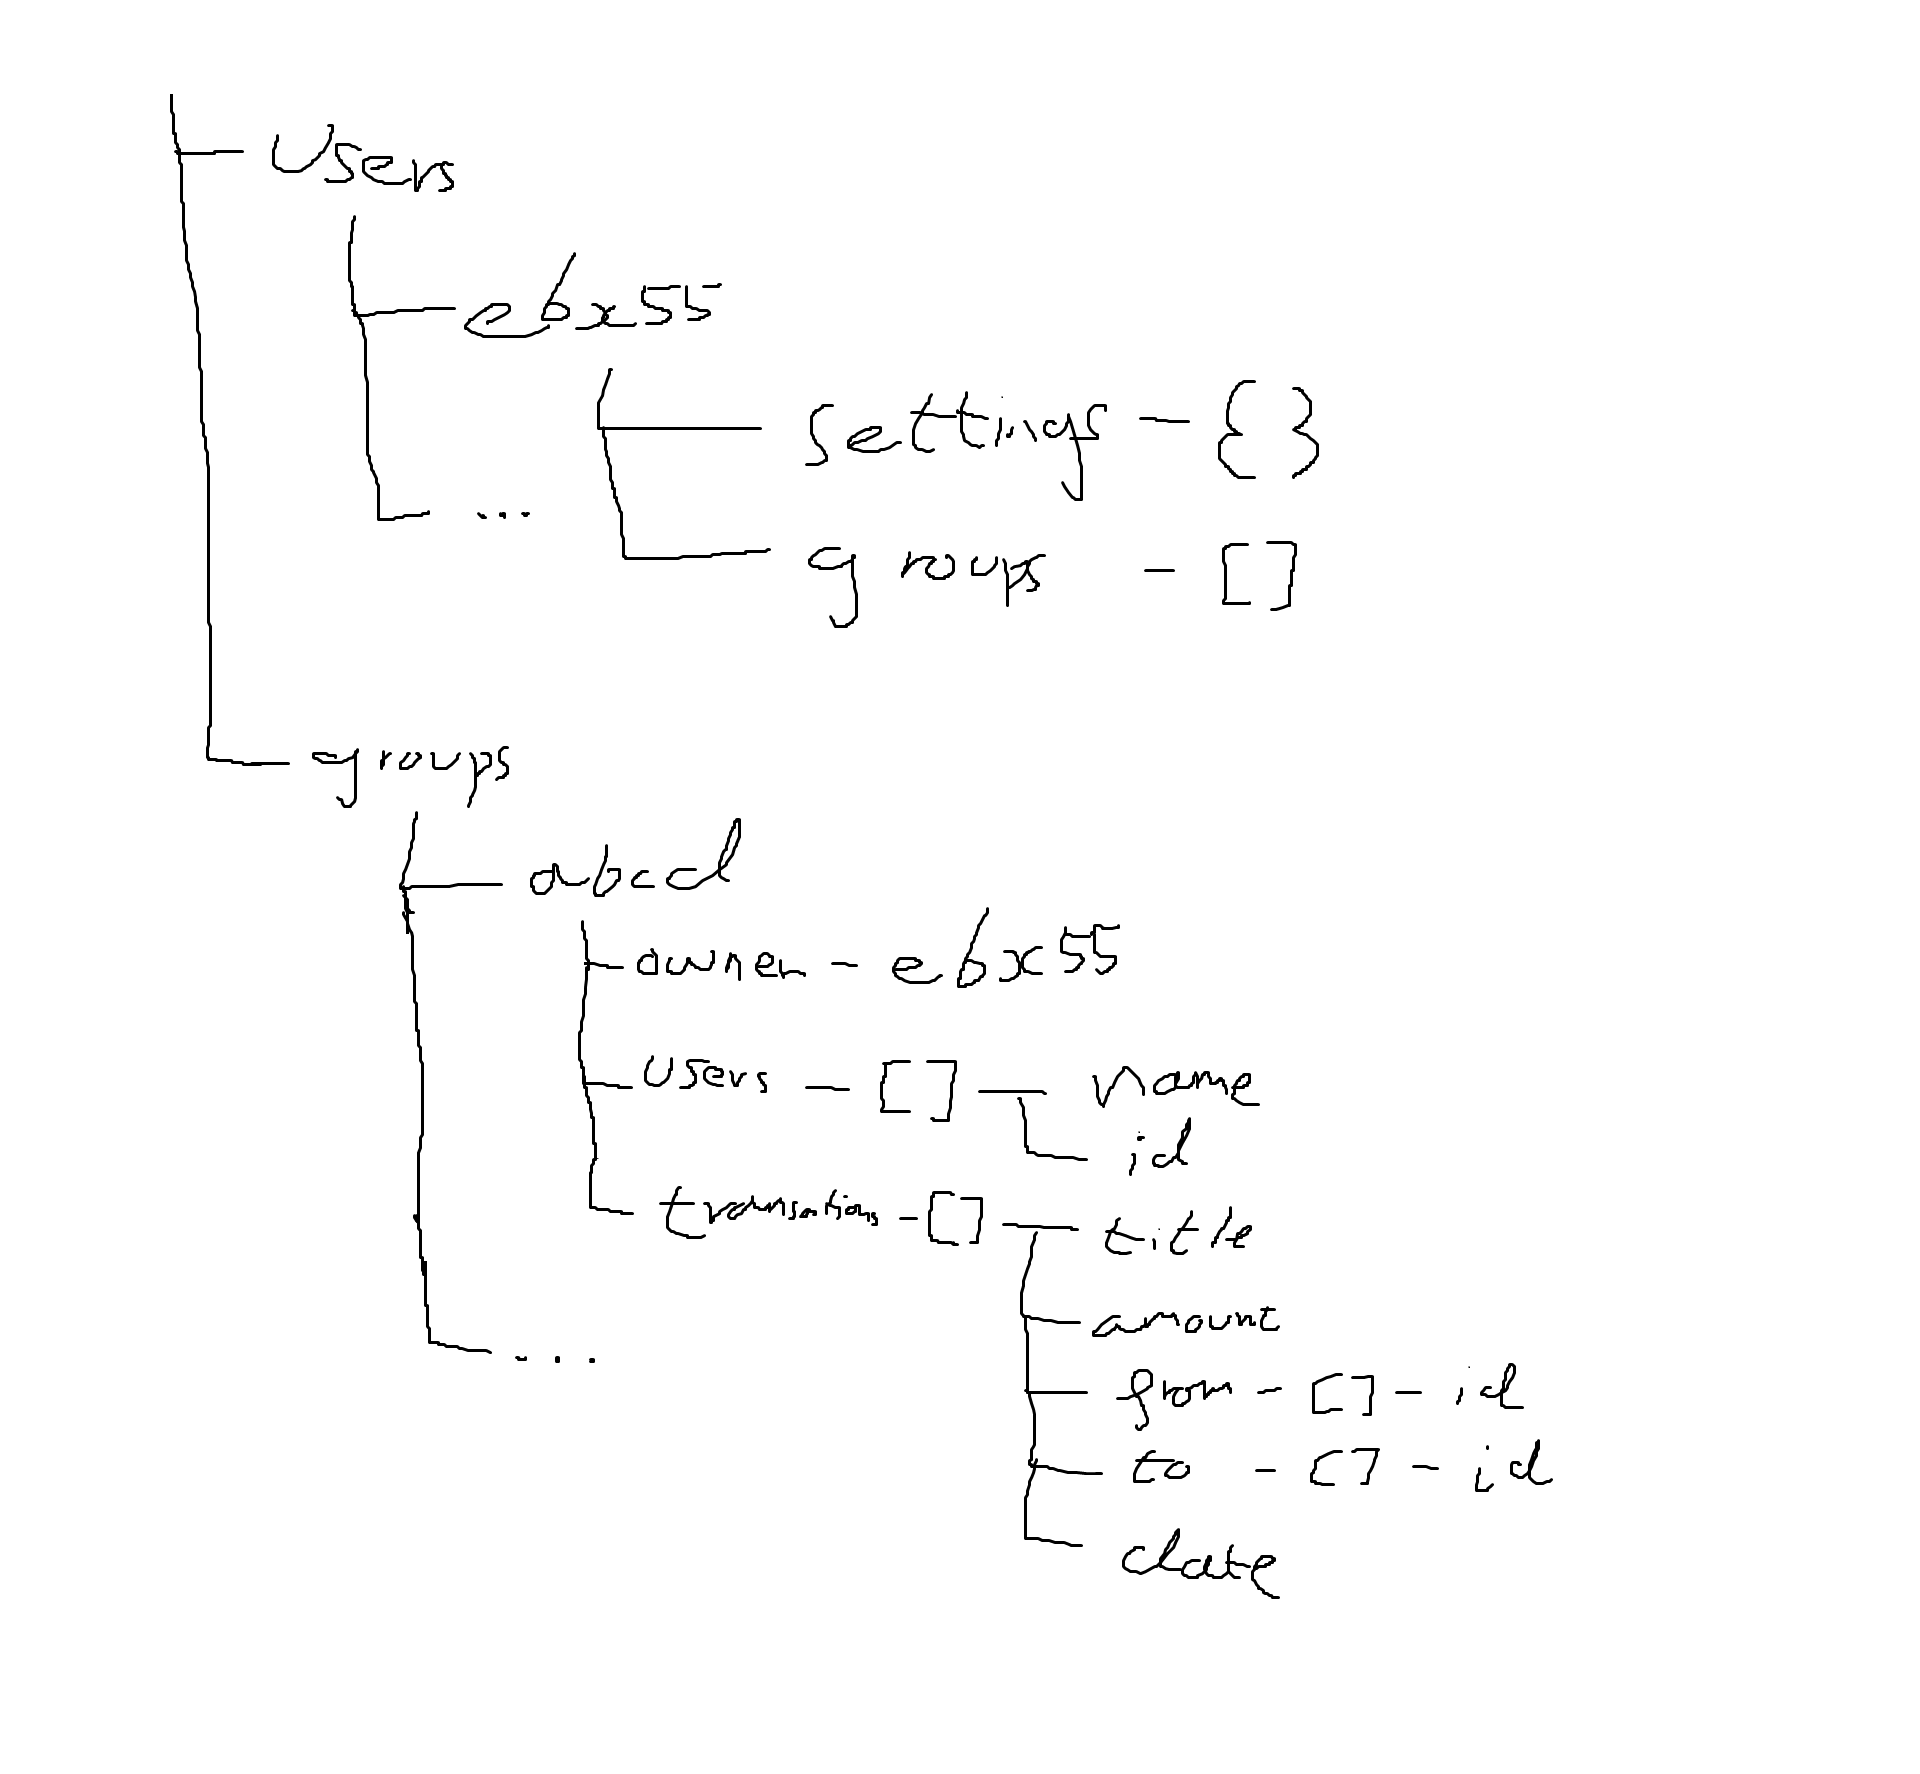 Users
ebx55
settings - {}
... groups - []
groups
abcd
owner - ebx55
users - [] name
id
transations - [] title
amount
...
from - [] - id
to - [] - id
date